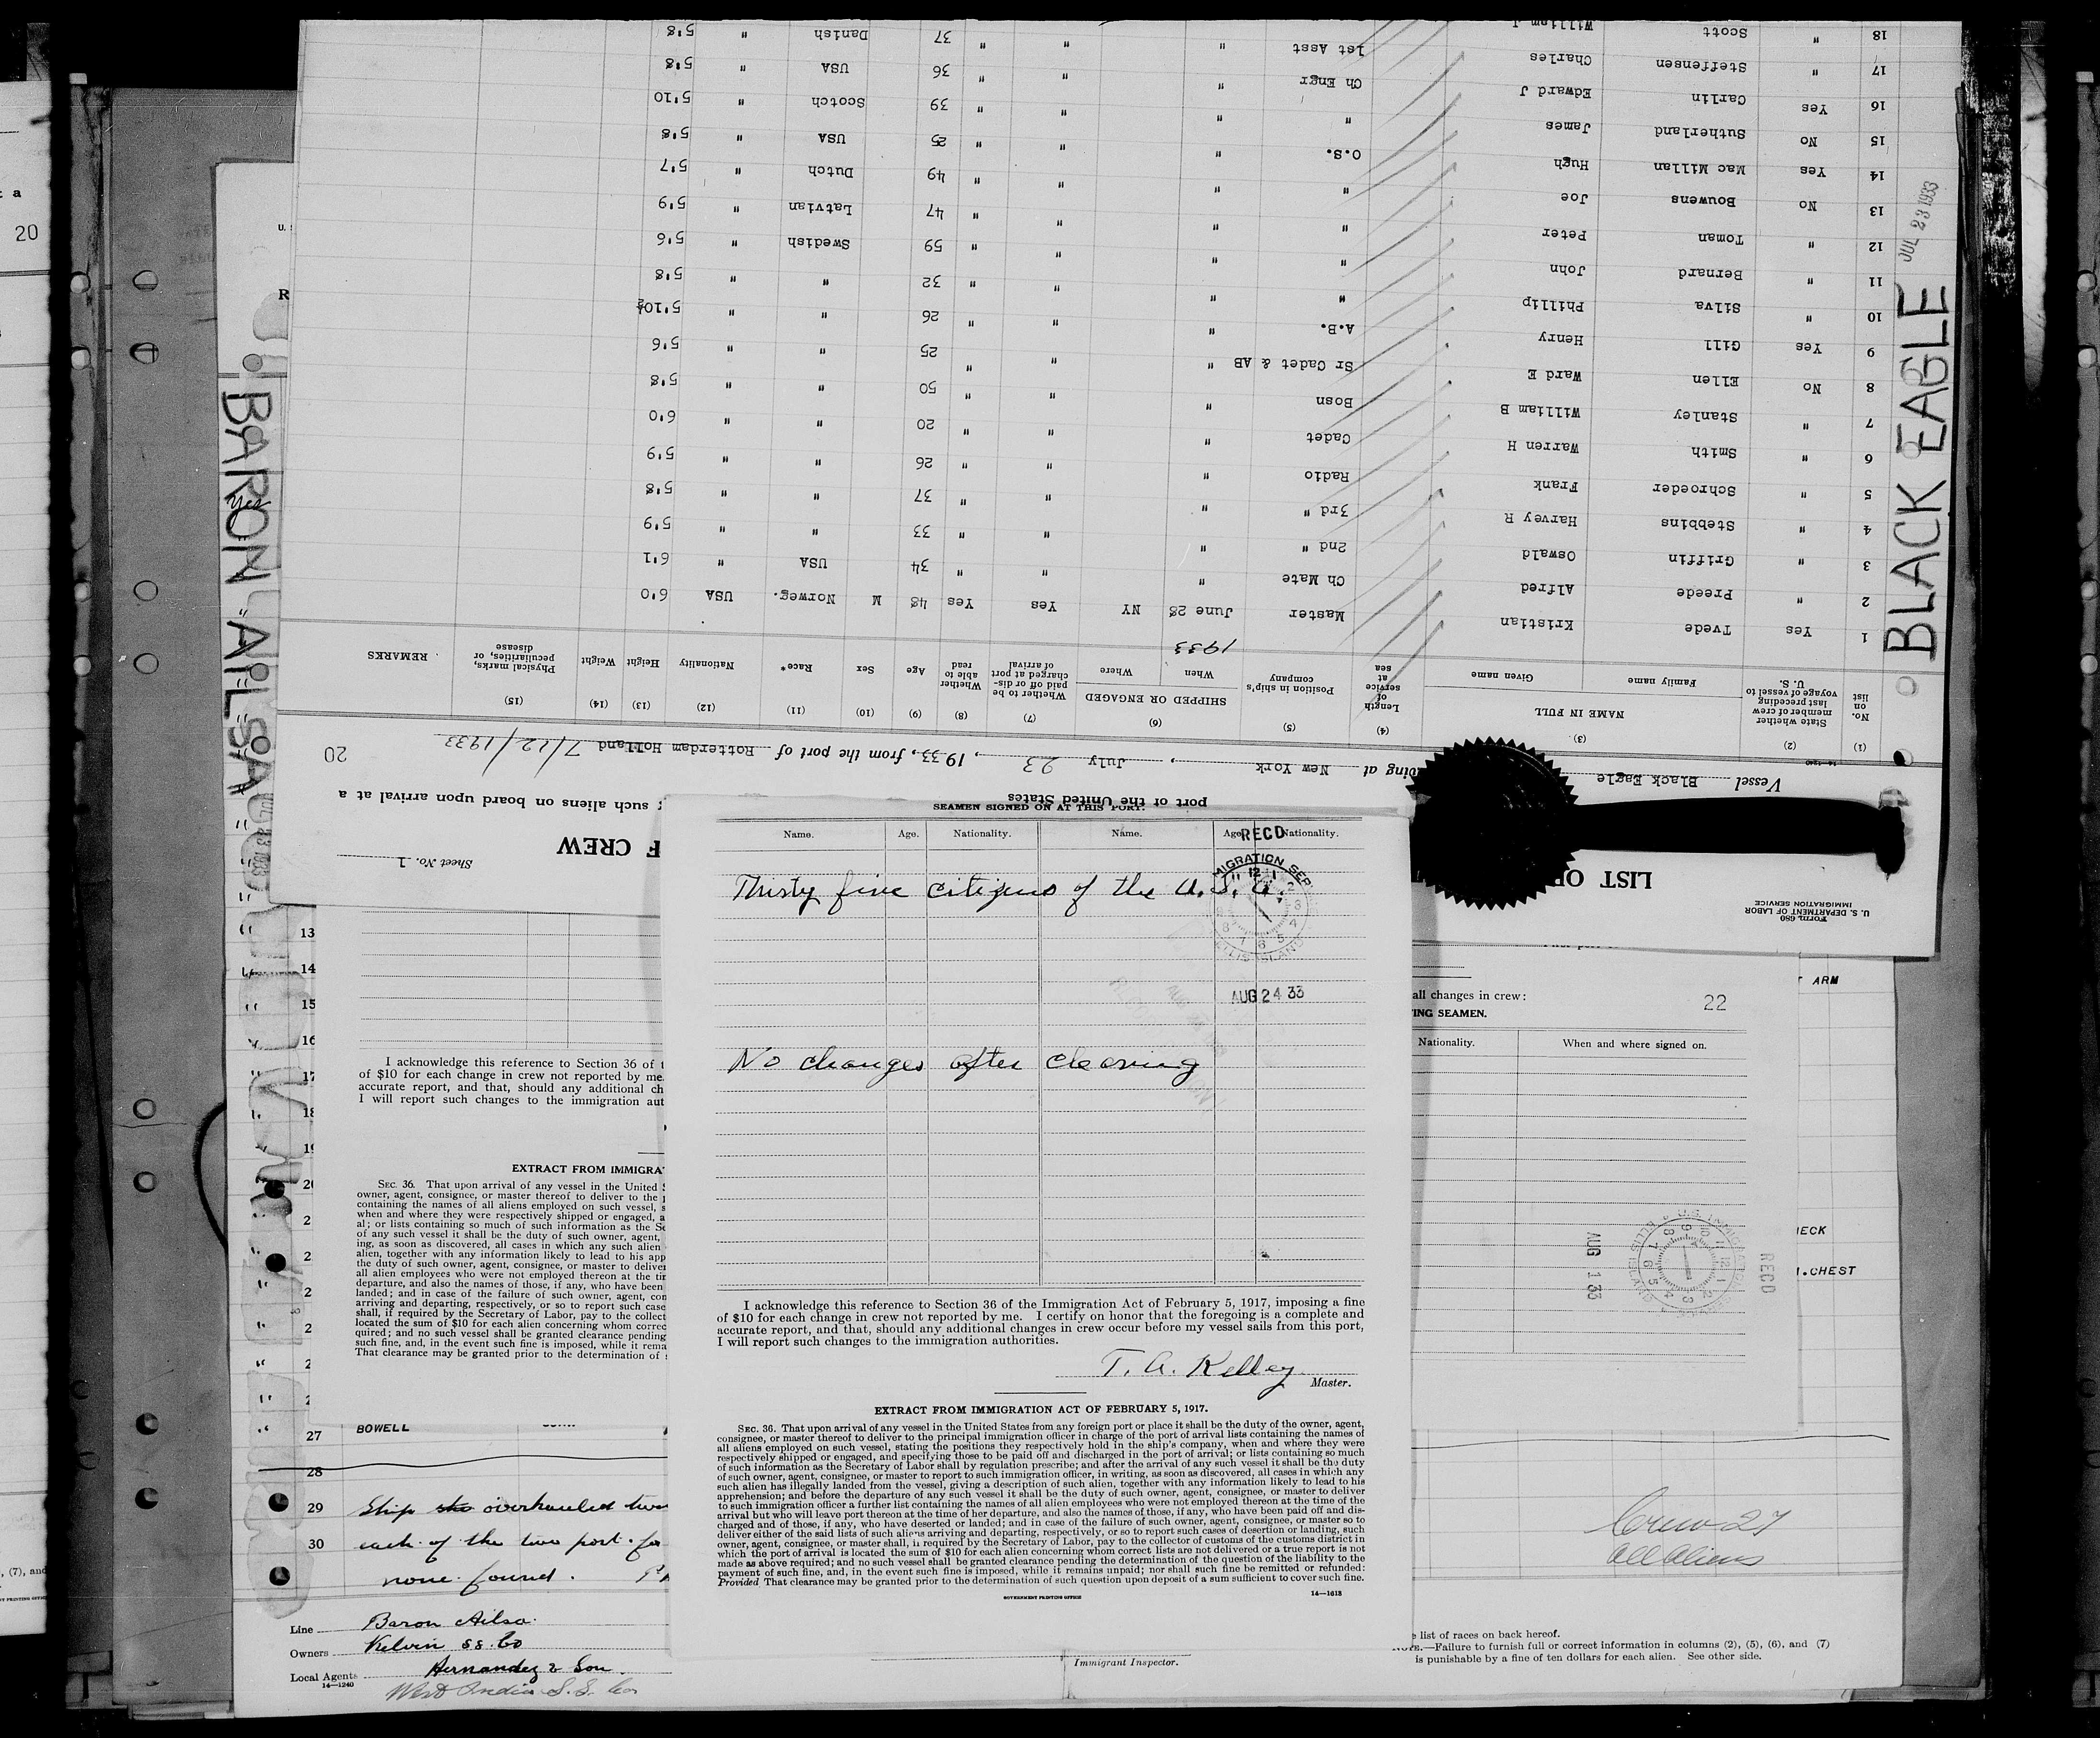 BLACK EAGLE
JUL 23 1933
Form 680
U. S. DEPARTMENT OF LABOR
IMMIGRATION SERVICE
LIST OF CREW
Sheet No. 1
such aliens on board upon arrival at a port of the United States
20
Vessel Black Eagle ... New York, July 23, 1933, from the port of Rotterdam Holland 7/12/1933
(1) (2) (3) (4) (5) (6) (7) (8) (9) (10) (11) (12) (13) (14) (15)
No. on list State whether member of crew last preceding voyage of vessel to U. S. NAME IN FULL Family name Given name Length of service at sea Position in ship's company SHIPPED OR ENGAGED When Where Whether to be paid off or discharged at port of arrival Whether able to read Age Sex Race* Nationality Height Weight Physical marks, peculiarities, or disease REMARKS
1933
1 Yes Tvede Kristian Master June 28 NY Yes Yes 48 M Norweg. USA 6'0
2 " Preede Alfred Ch Mate " " " 34 USA " 6'1
3 " Griffin Oswald 2nd " " " " 33 " " 5'9
4 " Stebbins Harvey R 3rd " " " " 37 " " 5'8
5 " Schroeder Frank Radio " " " 26 " " 5'9
6 " Smith Warren H Cadet " " " 20 " " 6'0
7 " Stanley William B Bosn " " " 50 " " 5'8
8 No Ellen Ward E Sr Cadet & AB " " " 25 " " 5'6
9 Yes Gill Henry A.B. " " " 26 " " 5'10½
10 " Silva Phillip " " " " 32 " " 5'8
11 " Bernard John " " " " 59 Swedish " 5'6
12 " Toman Peter " " " " 47 Latvian " 5'9
13 No Bouwens Joe " " " " 49 Dutch " 5'7
14 Yes Mac Millan Hugh O.S. " " " 25 USA " 5'8
15 No Sutherland James " " " " 39 Scotch " 5'10
16 Yes Carlin Edward J Ch Engr " " " 36 USA " 5'8
17 " Steffensen Charles 1st Asst " " " 37 Danish " 5'8
18 " Scott William J
BARON AILSA
Yes
20
SEAMEN SIGNED ON AT THIS PORT.
Name. Age. Nationality. Name. Age. Nationality.
RECD
AUG 24 33
Thirty five citizens of the U.S.A.
No changes after clearing
I acknowledge this reference to Section 36 of the Immigration Act of February 5, 1917, imposing a fine
of $10 for each change in crew not reported by me. I certify on honor that the foregoing is a complete and
accurate report, and that, should any additional changes in crew occur before my vessel sails from this port,
I will report such changes to the immigration authorities.
T. A. Kelley
Master.
EXTRACT FROM IMMIGRATION ACT OF FEBRUARY 5, 1917.
SEC. 36. That upon arrival of any vessel in the United States from any foreign port or place it shall be the duty of the owner, agent,
consignee, or master thereof to deliver to the principal immigration officer in charge of the port of arrival lists containing the names of
all aliens employed on such vessel, stating the positions they respectively hold in the ship's company, when and where they were
respectively shipped or engaged, and specifying those to be paid off and discharged in the port of arrival; or lists containing so much
of such information as the Secretary of Labor shall by regulation prescribe; and after the arrival of any such vessel it shall be the duty
of such owner, agent, consignee, or master to report to such immigration officer, in writing, as soon as discovered, all cases in which any
such alien has illegally landed from the vessel, giving a description of such alien, together with any information likely to lead to his
apprehension; and before the departure of any such vessel it shall be the duty of such owner, agent, consignee, or master to deliver
to such immigration officer a further list containing the names of all alien employees who were not employed thereon at the time of the
arrival but who will leave port thereon at the time of her departure, and also the names of those, if any, who have been paid off and dis-
charged and of those, if any, who have deserted or landed; and in case of the failure of such owner, agent, consignee, or master so to
deliver either of the said lists of such aliens arriving and departing, respectively, or so to report such cases of desertion or landing, such
owner, agent, consignee, or master shall, if required by the Secretary of Labor, pay to the collector of customs of the customs district in
which the port of arrival is located the sum of $10 for each alien concerning whom correct lists are not delivered or a true report is not
made as above required; and no such vessel shall be granted clearance pending the determination of the question of the liability to the
payment of such fine, and, in the event such fine is imposed, while it remains unpaid; nor shall such fine be remitted or refunded:
Provided That clearance may be granted prior to the determination of such question upon deposit of a sum sufficient to cover such fine.
GOVERNMENT PRINTING OFFICE
14—1618
Immigrant Inspector.
13
14
15
16
17
18
19
I acknowledge this reference to Section 36 of
of $10 for each change in crew not reported by me.
accurate report, and that, should any additional ch
I will report such changes to the immigration aut
EXTRACT FROM IMMIGRA
SEC. 36. That upon arrival of any vessel in the United
owner, agent, consignee, or master thereof to deliver to the
containing the names of all aliens employed on such vessel, s
when and where they were respectively shipped or engaged, a
al; or lists containing so much of such information as the Se
of any such vessel it shall be the duty of such owner, agent,
ing, as soon as discovered, all cases in which any such alien
alien, together with any information likely to lead to his app
the duty of such owner, agent, consignee, or master to deliver
all alien employees who were not employed thereon at the tim
departure, and also the names of those, if any, who have been
landed; and in case of the failure of such owner, agent, con
arriving and departing, respectively, or so to report such case
shall, if required by the Secretary of Labor, pay to the collect
located the sum of $10 for each alien concerning whom correc
quired; and no such vessel shall be granted clearance pending
such fine, and, in the event such fine is imposed, while it rema
That clearance may be granted prior to the determination of
27 BOWELL
28
29 Ship overhauled
30 each of the two port
none found.
Line Baron Ailsa
Owners Kelvin SS. Co
Local Agents Hernandez & Son
14—1240
West India S.S. Co
ARM
all changes in crew:
22
ING SEAMEN.
Nationality. When and where signed on.
AUG 1 33
RECD
ECK
CHEST
Crew 27
all aliens
list of races on back hereof.
NOTE.—Failure to furnish full or correct information in columns (2), (5), (6), and (7)
is punishable by a fine of ten dollars for each alien. See other side.